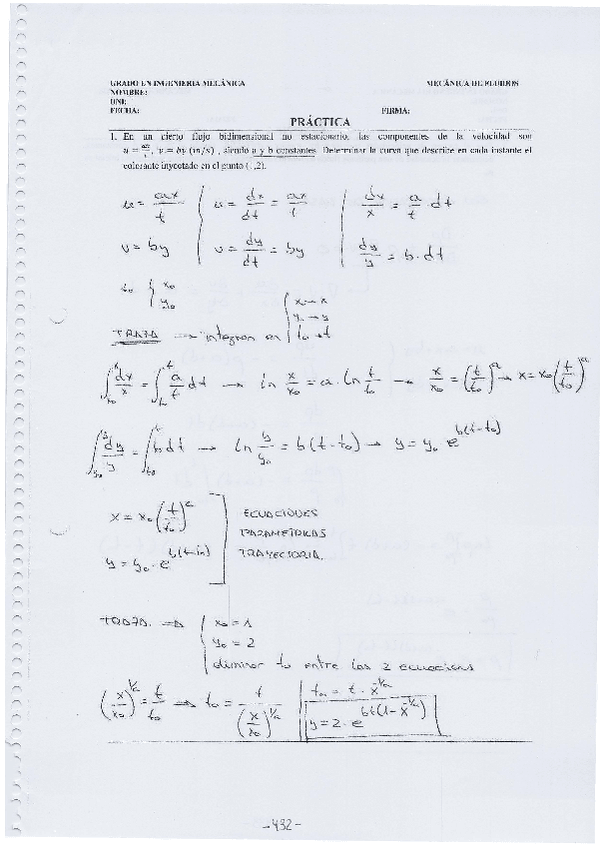 GRADO EN INGENIERIA MECÁNICA MECÁNICA DE FLUIDOS
NOMBRE:
DNI:
FECHA: FIRMA:
PRÁCTICA
1. En un cierto flujo bidimensional no estacionario, las componentes de la velocidad son
u = ax/t, v = by (m/s), siendo a y b constantes. Determinar la curva que describe en cada instante el
colorante inyectado en el punto (1,2).
u = ax/t { u = dx/dt = ax/t | dx/x = a/t · dt
v = by { v = dy/dt = by | dy/y = b · dt
t₀ { x₀
y₀
TRAZA → integran en { x₀ → x
y₀ → y
t₀ → t
∫_{x₀}^{x} dx/x = ∫_{t₀}^{t} a/t dt → ln x/x₀ = a · ln t/t₀ → x/x₀ = (t/t₀)^a → x = x₀ (t/t₀)^a
∫_{y₀}^{y} dy/y = ∫_{t₀}^{t} b dt → ln y/y₀ = b(t-t₀) → y = y₀ e^{b(t-t₀)}
x = x₀ (t/t₀)^a ] ECUACIONES
PARAMETRICAS
y = y₀ · e^{b(t-t₀)} ] TRAYECTORIA
TRAZA ⇒ { x₀ = 1
y₀ = 2
eliminar t₀ entre las 2 ecuaciones
(x/x₀)^{1/a} = t/t₀ → t₀ = t/(x/x₀)^{1/a} | t₀ = t · x^{-1/a}
y = 2 · e^{bt(1-x^{-1/a})}
-432-